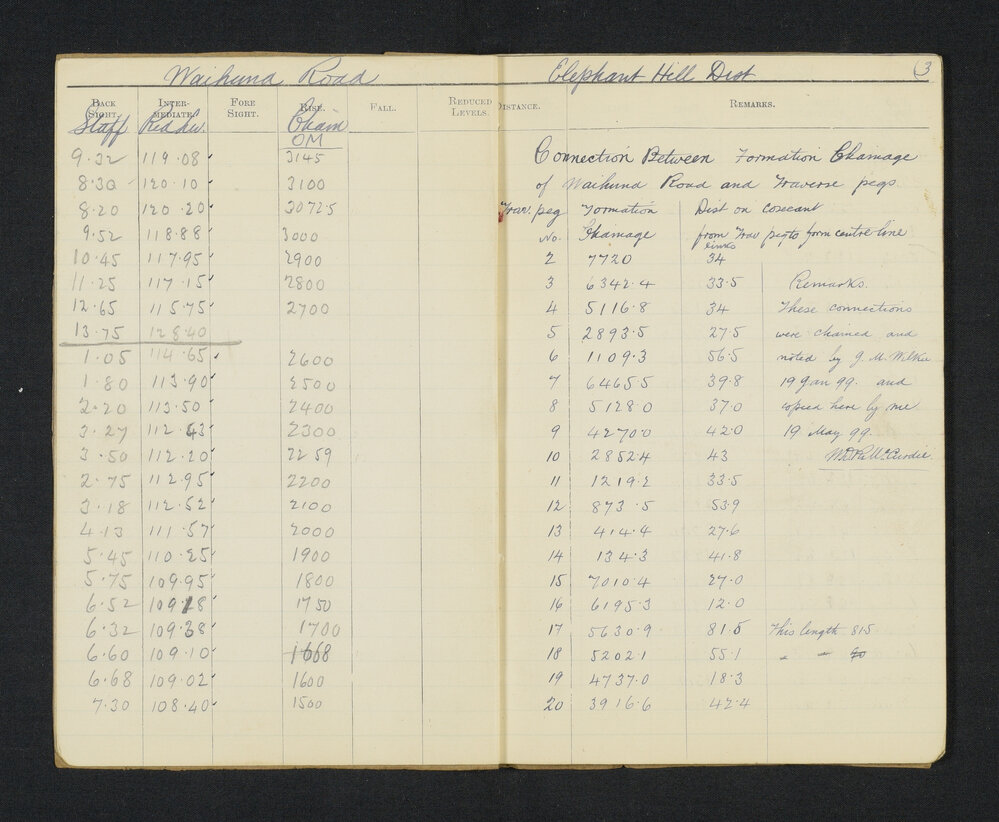 Waihund Road
BACK SIGHT. INTER-MEDIATE. FORE SIGHT. RISE. FALL. REDUCED LEVELS.
Staff Red Lev. Chain
OM
9.32 119.08 3145
8.30 120.10 3100
8.20 120.20 3072.5
9.52 118.88 3000
10.45 117.95 2900
11.25 117.15 2800
12.65 115.75 2700
13.75 128.40
1.05 114.65 2600
1.80 113.90 2500
2.20 113.50 2400
3.27 112.43 2300
3.50 112.20 2259
2.75 112.95 2200
3.18 112.52 2100
4.13 111.57 2000
5.45 110.25 1900
5.75 109.95 1800
6.52 109.18 1750
6.32 109.38 1700
6.60 109.10 1668
6.68 109.02 1600
7.30 108.40 1500
Elephant Hill Dist 3
DISTANCE. REMARKS.
Connection Between Formation Chainage
of Waihund Road and Traverse pegs.
Trav. peg Formation Dist on cosecant
No. Chainage from Trav peg to form centre-line
links
2 7720 34
3 6342.4 33.5 Remarks.
4 5116.8 34 These connections
5 2893.5 27.5 were chained and
6 1109.3 56.5 noted by J. M. Wilkie
7 6465.5 39.8 19 Jan 99. and
8 5128.0 37.0 copied here by me
9 4270.0 42.0 19 May 99.
10 2852.4 43
11 1219.2 33.5
12 873.5 53.9
13 414.4 27.6
14 134.3 41.8
15 7010.4 27.0
16 6195.3 12.0
17 5630.9 81.5 This length 81.5
18 5202.1 55.1 " "
19 4737.0 18.3
20 3916.6 42.4